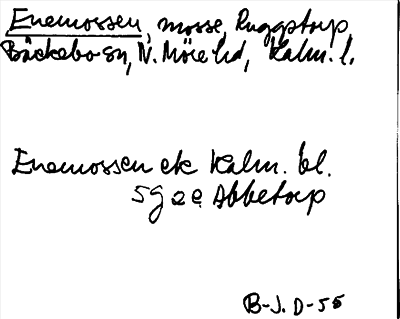 Enemossen, mosse, Ruggstorp,
Bäckebo sn, N. Möre hd, Kalm. l.
Enemossen ek Kalm. bl.
5g ae Abbetorp
B-J. D-55